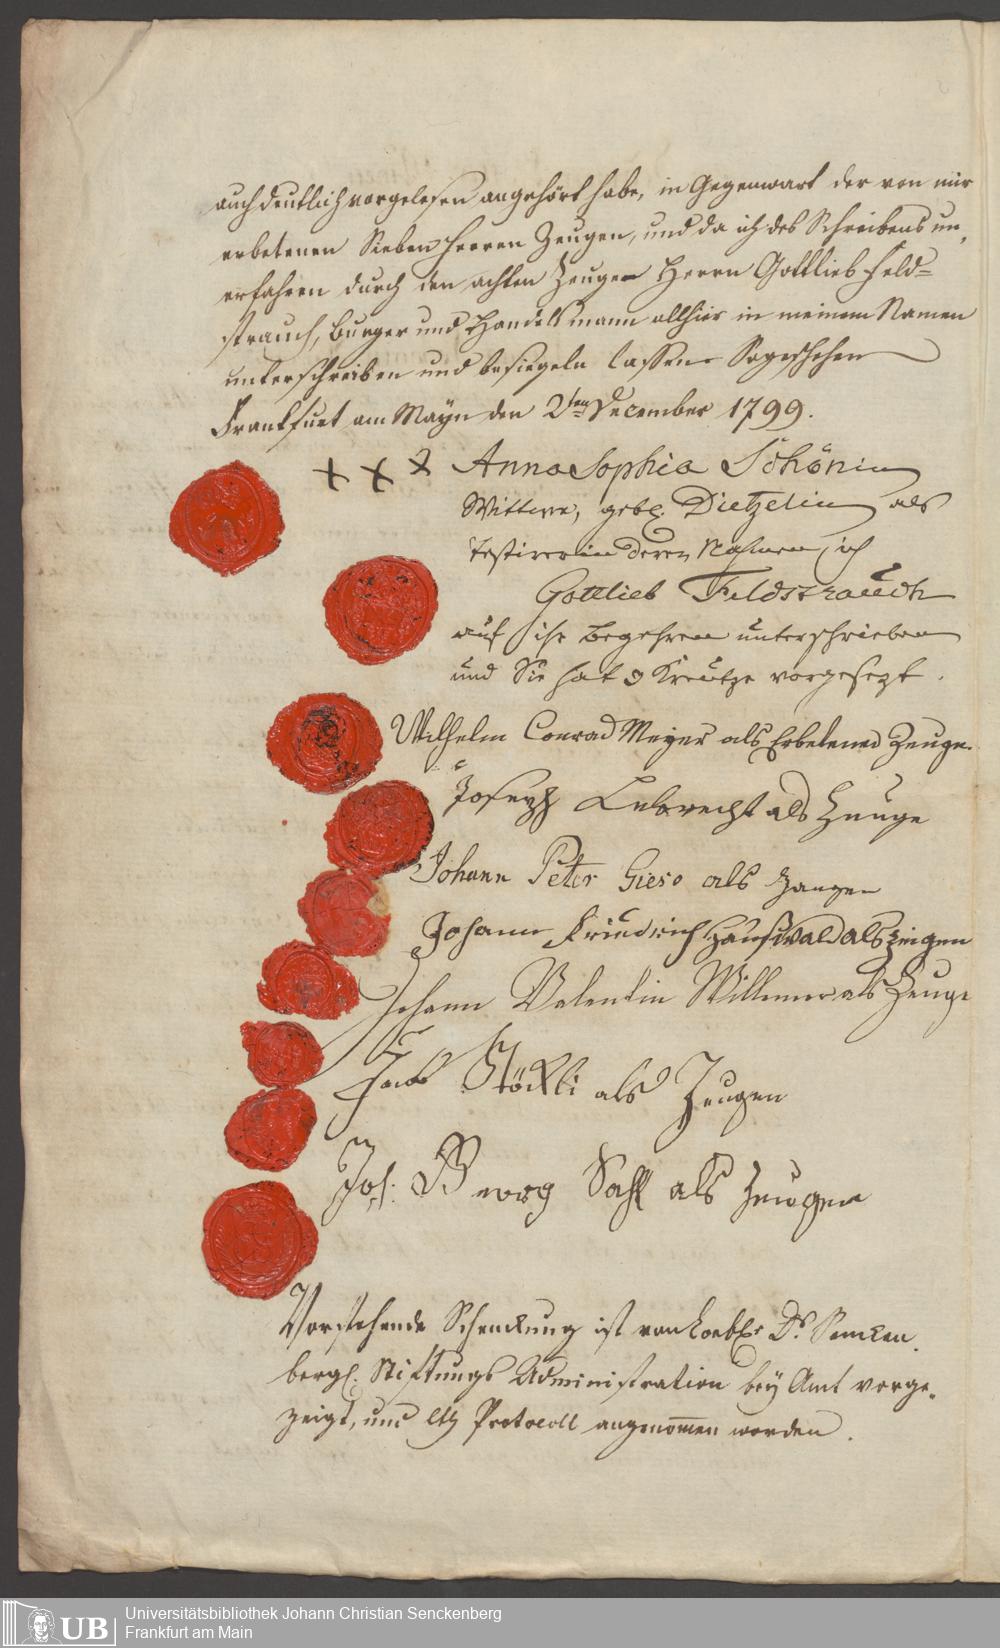 auch deutlich vorgelesen angehört habe, in Gegenwart der von mir
erbetenen Sieben Herren Zeugen, und da ich des Schreibens un„
erfahren durch den achten Zeugen Herrn Gottlieb Feld=
strauch, burger und Handelsmann allhier in meinem Namen
unterschreiben und besiegeln lassen. So geschehen
Franckfurt am Mayn den 2ten December 1799.
x x x Anna Sophia Schönin
Wittwe, gebl. Dietzelin als
Testirerin deren Nahmen ich
Gottlieb Feldstrauch
auf ihr begehren unterschrieben
und Sie hat 3 Kreutze vorgesezt.
Wilhelm Conrad Meyer als Erbetener Zeuge.
Joseph Lebrecht als Zeuge
Johann Peter Giese als Zeugen
Johann Friedrich Haußwald als zeigen
Johann Valentin Willemer als Zeuge
Jacob Stöckli als Zeugen
Joh. Georg Sahl als Zeugen
Vorstehende Schenckung ist von Loebler Dr. Sencken„
bergl. Stiftungs Administration bey Amt vorge„
zeigt, und Protocoll angenom̅en worden.
Universitätsbibliothek Johann Christian Senckenberg
UB Frankfurt am Main